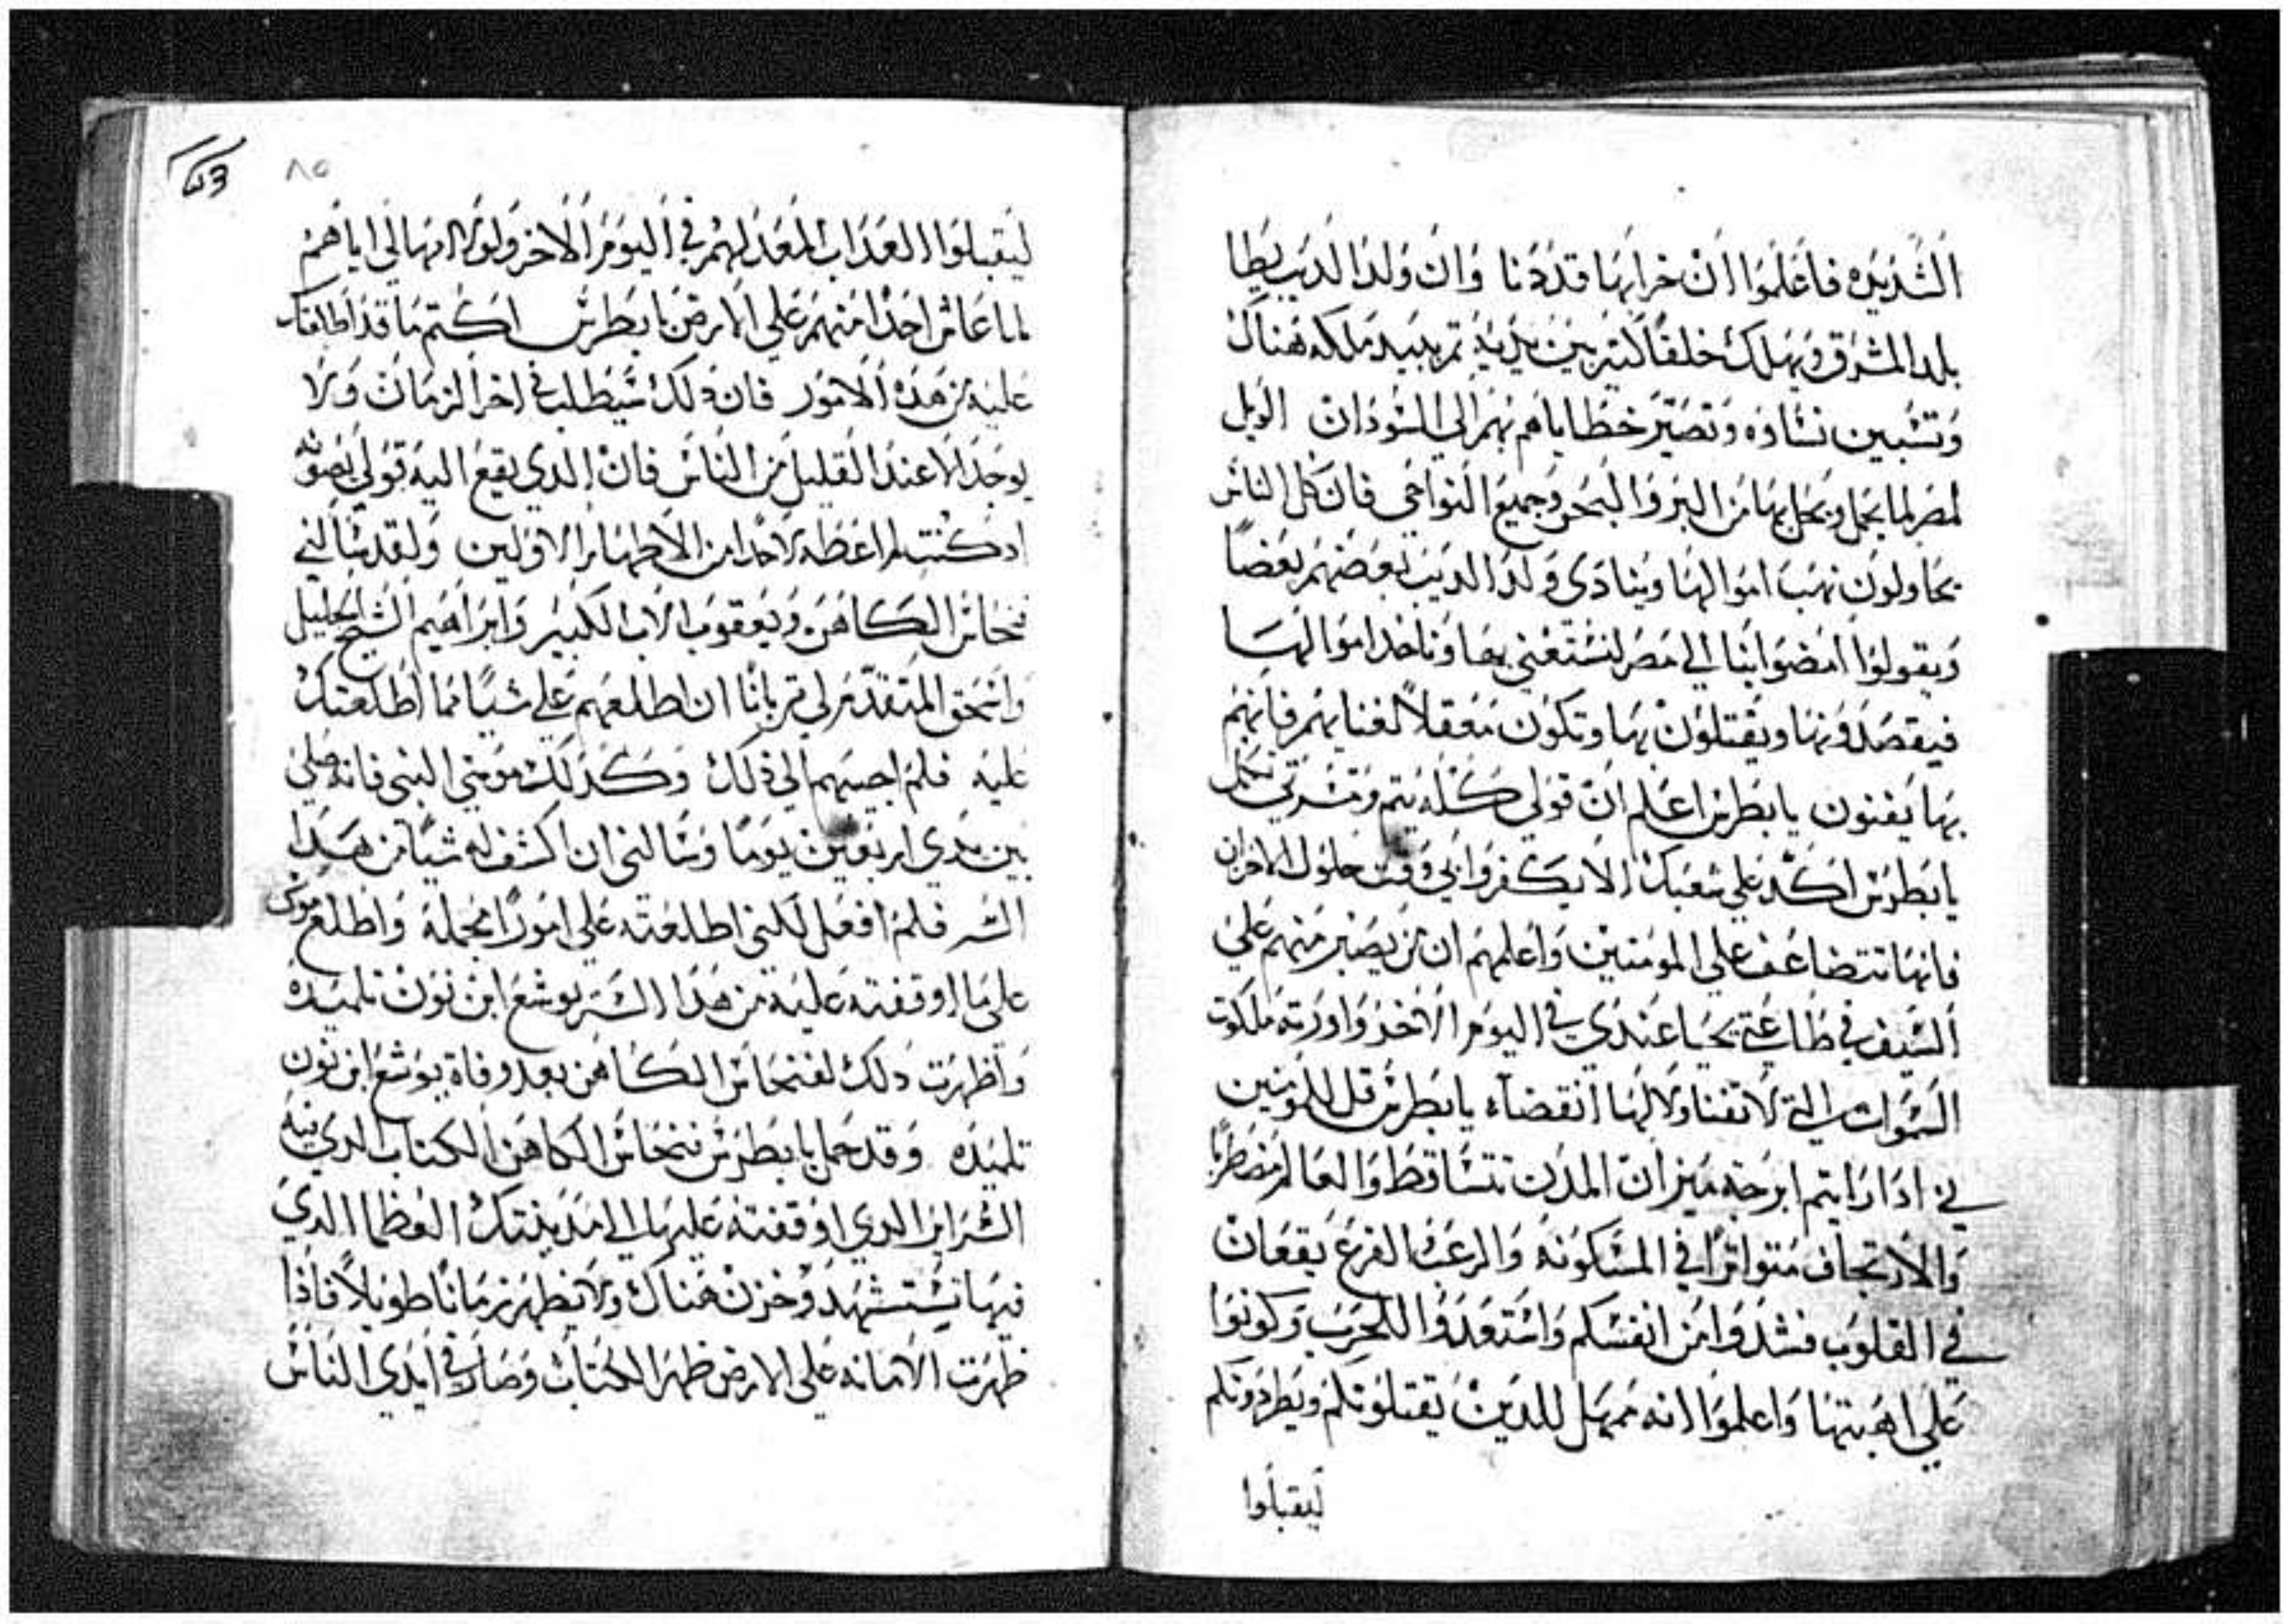 الشديده فاعلموا ان خرابها قد دنا وان ولد الديب يطا
بلد المشرق ويهلك خلقًا كثير بين يديه تم يبيد ملكه هناك
وتشبين نشاوه وتصير خطاياهم بهم الي السودان الويل
لمصر لما يحمل ويحل بها من البر والبحر وجميع النواحي فان كل الناس
يحاولون نهب اموالها وينادي ولد الديب بعضهم بعضًا
ويقولوا امضوا بنا الي مصر لنستغني بها وناخد اموالها
فيقصدونها ويقتلون بها وتكون معقلاً لغنايهم فانهم
بها يفنون يا بطرس اعلم ان قولي كله يتم ومشرتي تكمل
يا بطرس اكد علي شعبك الا يكفروا بي وقت حلول الاحزان
فانها تتضاعف علي المومنين واعلمهم ان من يصبر منهم علي
السيف في طاعتي يحيا عندي في اليوم الاخر واورته ملكوت
السموات التي لا تفنا ولا لها انقضاء يا بطرس قل للمومنين
بي ادا رايتم ابرجة ميزان المدن تتساقط والعالم مضطربا
والارتجاف متواترًا في المسكونه والرعب الفزع يقعان
في القلوب فشدوا من انفسكم واستعدوا للحرب وكونوا
علي اهبتها واعلموا انه ممهل للدين يقتلونكم ويطردونكم
ليقبلوا
٨٥
ليقبلوا العداب المعد لهم في اليوم الاخر ولولا امهالي اياهم
لما عاش احدًا منهم علي الارض يا بطرس اكتم ما قد اطلعتك
عليه من هده الامور فان دلك سيطلب في اخر الزمان ولا
يوجد الا عند القليل من الناس فان الدي يقع اليه قولي يصونه
اد كنت لم اعطه لاحدًا من الاطهار الاولين ولقد سالني
فنحاس الكاهن ويعقوب الاب الكبير وابراهيم الشيخ الجليل
واسحق المتقدم لي قربانًا ان اطلعهم علي شيًا مما اطلعتك
عليه فلم اجيبهم الي ذلك وكدلك موسي النبي فانه صلي
بين يدي اربعين يومًا وسالني ان اكشف له شيًا من هدا
السر فلم افعل لكني اطلعته علي امورًا مجملة واطلع موسى
علي ما اوقفته عليه من هدا السر يوشع ابن نون تلميده
واظهرت دلك لفنحاس الكاهن بعد وفاة يوشع ابن نون
تلميده وقد حمل يا بطرس فنحاس الكاهن الكتاب الدي فيه
السراير الدي اوقفته عليها الي مدينتك العظما الدي
فيها تستشهد وخزن هناك ولا يظهر زمانًا طويلاً فاذا
ظهرت الامانه علي الارض ظهر الكتاب وصار في ايدي الناس